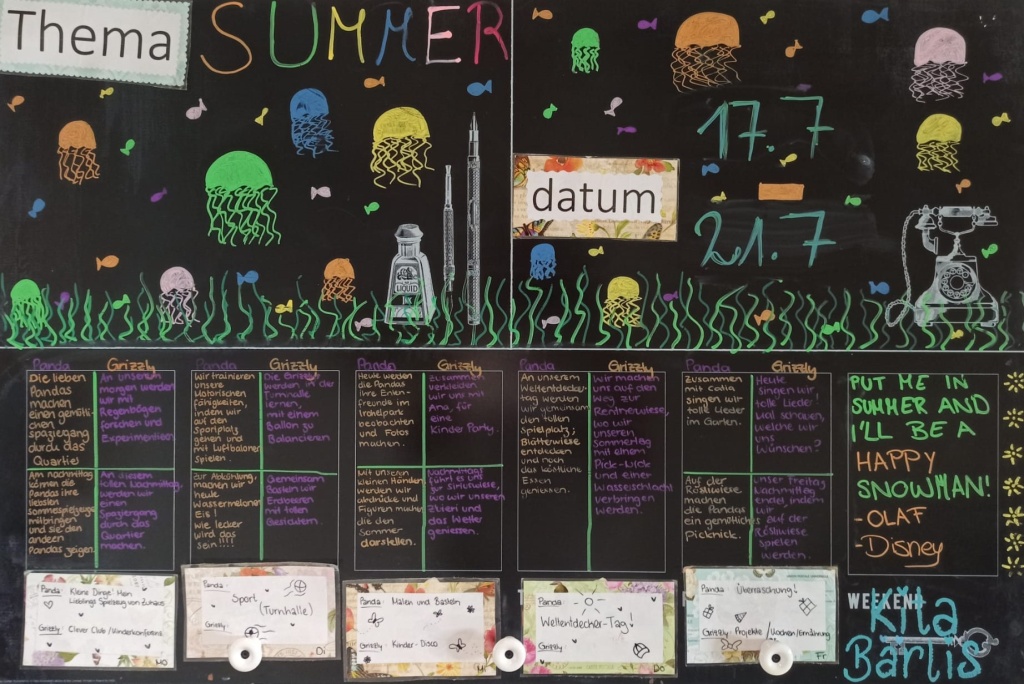 Thema
SUMMER
datum
17.7
-
21.7
LIQUID
INK
Panda
Grizzly
Die lieben
Pandas
machen
einen gemütli-
chen
spaziegang
durch das
Quartier
An unserem
morgen werden
wir mit
Regenbögen
forschen und
Experimentieren
Am nachmittag
können die
Pandas ihre
liebsten
sommerspielzeuge
mitbringen
und sie den
andern
Pandas zeigen.
An diesem
tollen Nachmittag,
werden wir
einen
Spaziergang
durch das
Quartier
machen.
Panda
Grizzly
Wir trainieren
unsere
Motorischen
Fähigkeiten,
indem wir
auf den
Sportplatz
gehen und
mit Luftballone
spielen.
Die Grizzly
werden in der
Turnhalle
lernen,
mit einem
Ballon zu
Balancieren
zur Abkühlung,
machen wir
heute
Wassermelonen
Eis!
wie lecker
wird das
sein!!!!
Gemeinsam
Basteln wir
Erdbeeren
mit tollen
Gesichtern.
Panda
Grizzly
Heute werden
die Pandas
ihre Enten-
Freunde im
Irchelpark
beobachten
und Fotos
machen.
Zusammen
verkleiden
wir uns mit
Ana, für
eine
Kinder Party.
Mit unseren
kleinen Händen
werden wir
abdrücke und
Figuren machen
die den
Sommer
darstellen.
Nachmittags
führt es uns
zur
wo wir unseren
Zvieri und
das Wetter
geniessen.
Panda
Grizzly
An unserem
Weltentdecker-
tag werden
wir gemeinsam
den tollen
Spielplatz
Blätterwiese
entdecken
und noch
das köstliche
Essen
geniessen.
Wir machen
uns auf den
Weg zur
Rentenwiese,
wo wir
unseren
Sommertag
mit einem
Pick-Nick
und einer
Wasserschlacht
verbringen
werden.
Panda
Grizzly
Zusammen
mit Catia
singen wir
tolle Lieder
im Garten.
Heute
singen wir
tolle Lieder!
Mal schauen,
welche wir
uns
wünschen?
Auf der
Röslwiese
machen
die Pandas
ein gemütliches
Picknick.
Unser Freitag
Nachmittag
endet indem
wir
auf der
Röslwiese
spielen
werden.
PUT ME IN
SUMMER AND
I'LL BE A
HAPPY
SNOWMAN!
-OLAF
-Disney
Panda: Kleine Dinge! Mein
Lieblings Spielzeug von Zuhause
Grizzly: Clever Club /Kinderkonferenz
Mo
Panda: Sport
(Turnhalle)
Grizzly:
Di
Panda: Malen und Basteln
Grizzly: Kinder-Disco
Mi
Panda:
Weltentdecher-Tag!
Grizzly:
Do
Panda: Überraschung!
Grizzly: Projekte /Kochen/Ernährung
Fr
WEEKEND
Kita
Bärlis